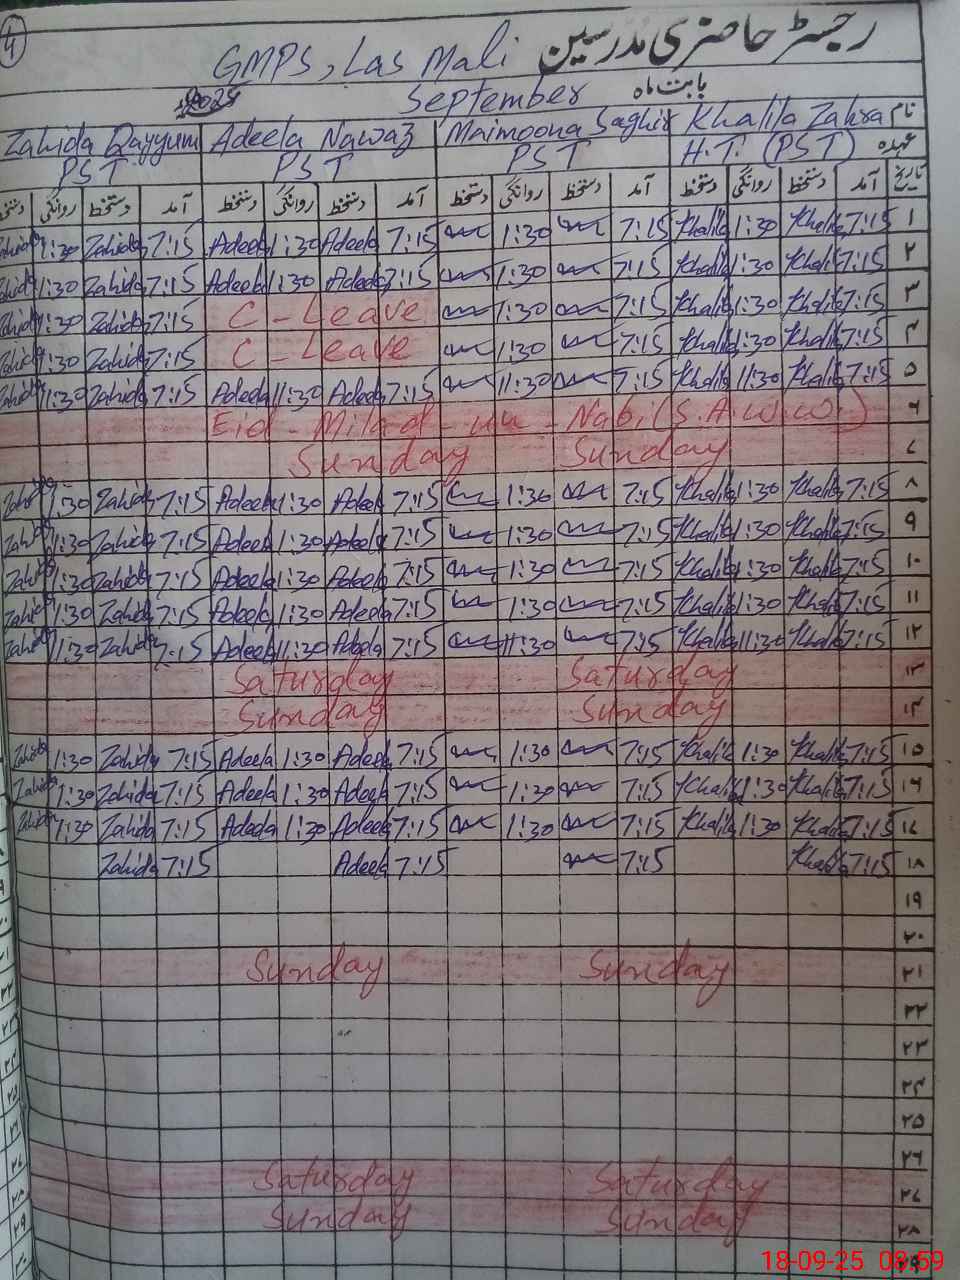 4
رجسٹر حاضری مدرسین
GMPS, Las Mali
بابت ماہ September 2025
نام Khalila Zahra Maimoona Saghir Adeela Nawaz Zahida Qayyum
عہدہ H.T. (PST) PST PST PST
تاریخ آمد دستخط روانگی دستخط آمد دستخط روانگی دستخط آمد دستخط روانگی دستخط آمد دستخط روانگی دستخط
۱ 7:15 Khalila 1:30 Khalila 7:15 1:30 7:15 Adeela 1:30 Adeela 7:15 Zahida 1:30 Zahida
۲ 7:15 Khalila 1:30 Khalila 7:15 1:30 7:15 Adeela 1:30 Adeela 7:15 Zahida 1:30 Zahida
۳ 7:15 Khalila 1:30 Khalila 7:15 1:30 C-Leave 7:15 Zahida 1:30 Zahida
۴ 7:15 Khalila 1:30 Khalila 7:15 1:30 C-Leave 7:15 Zahida 1:30 Zahida
۵ 7:15 Khalila 11:30 Khalila 7:15 11:30 7:15 Adeela 11:30 Adeela 7:15 Zahida 11:30 Zahida
۶ Eid-Milad-un-Nabi (S.A.W.W.)
۷ Sunday Sunday
۸ 7:15 Khalila 1:30 Khalila 7:15 1:30 7:15 Adeela 1:30 Adeela 7:15 Zahida 1:30 Zahida
۹ 7:15 Khalila 1:30 Khalila 7:15 1:30 7:15 Adeela 1:30 Adeela 7:15 Zahida 1:30 Zahida
۱۰ 7:15 Khalila 1:30 Khalila 7:15 1:30 7:15 Adeela 1:30 Adeela 7:15 Zahida 1:30 Zahida
۱۱ 7:15 Khalila 1:30 Khalila 7:15 1:30 7:15 Adeela 1:30 Adeela 7:15 Zahida 1:30 Zahida
۱۲ 7:15 Khalila 11:30 Khalila 7:15 11:30 7:15 Adeela 11:30 Adeela 7:15 Zahida 11:30 Zahida
۱۳ Saturday Saturday
۱۴ Sunday Sunday
۱۵ 7:15 Khalila 1:30 Khalila 7:15 1:30 7:15 Adeela 1:30 Adeela 7:15 Zahida 1:30 Zahida
۱۶ 7:15 Khalila 1:30 Khalila 7:15 1:30 7:15 Adeela 1:30 Adeela 7:15 Zahida 1:30 Zahida
۱۷ 7:15 Khalila 1:30 Khalila 7:15 1:30 7:15 Adeela 1:30 Adeela 7:15 Zahida 1:30 Zahida
۱۸ 7:15 Khalila 7:15 7:15 Adeela 7:15 Zahida
۱۹
۲۰
۲۱ Sunday Sunday
۲۲
۲۳
۲۴
۲۵
۲۶
۲۷ Saturday Saturday
۲۸ Sunday Sunday
۲۹
18-09-25 08:59